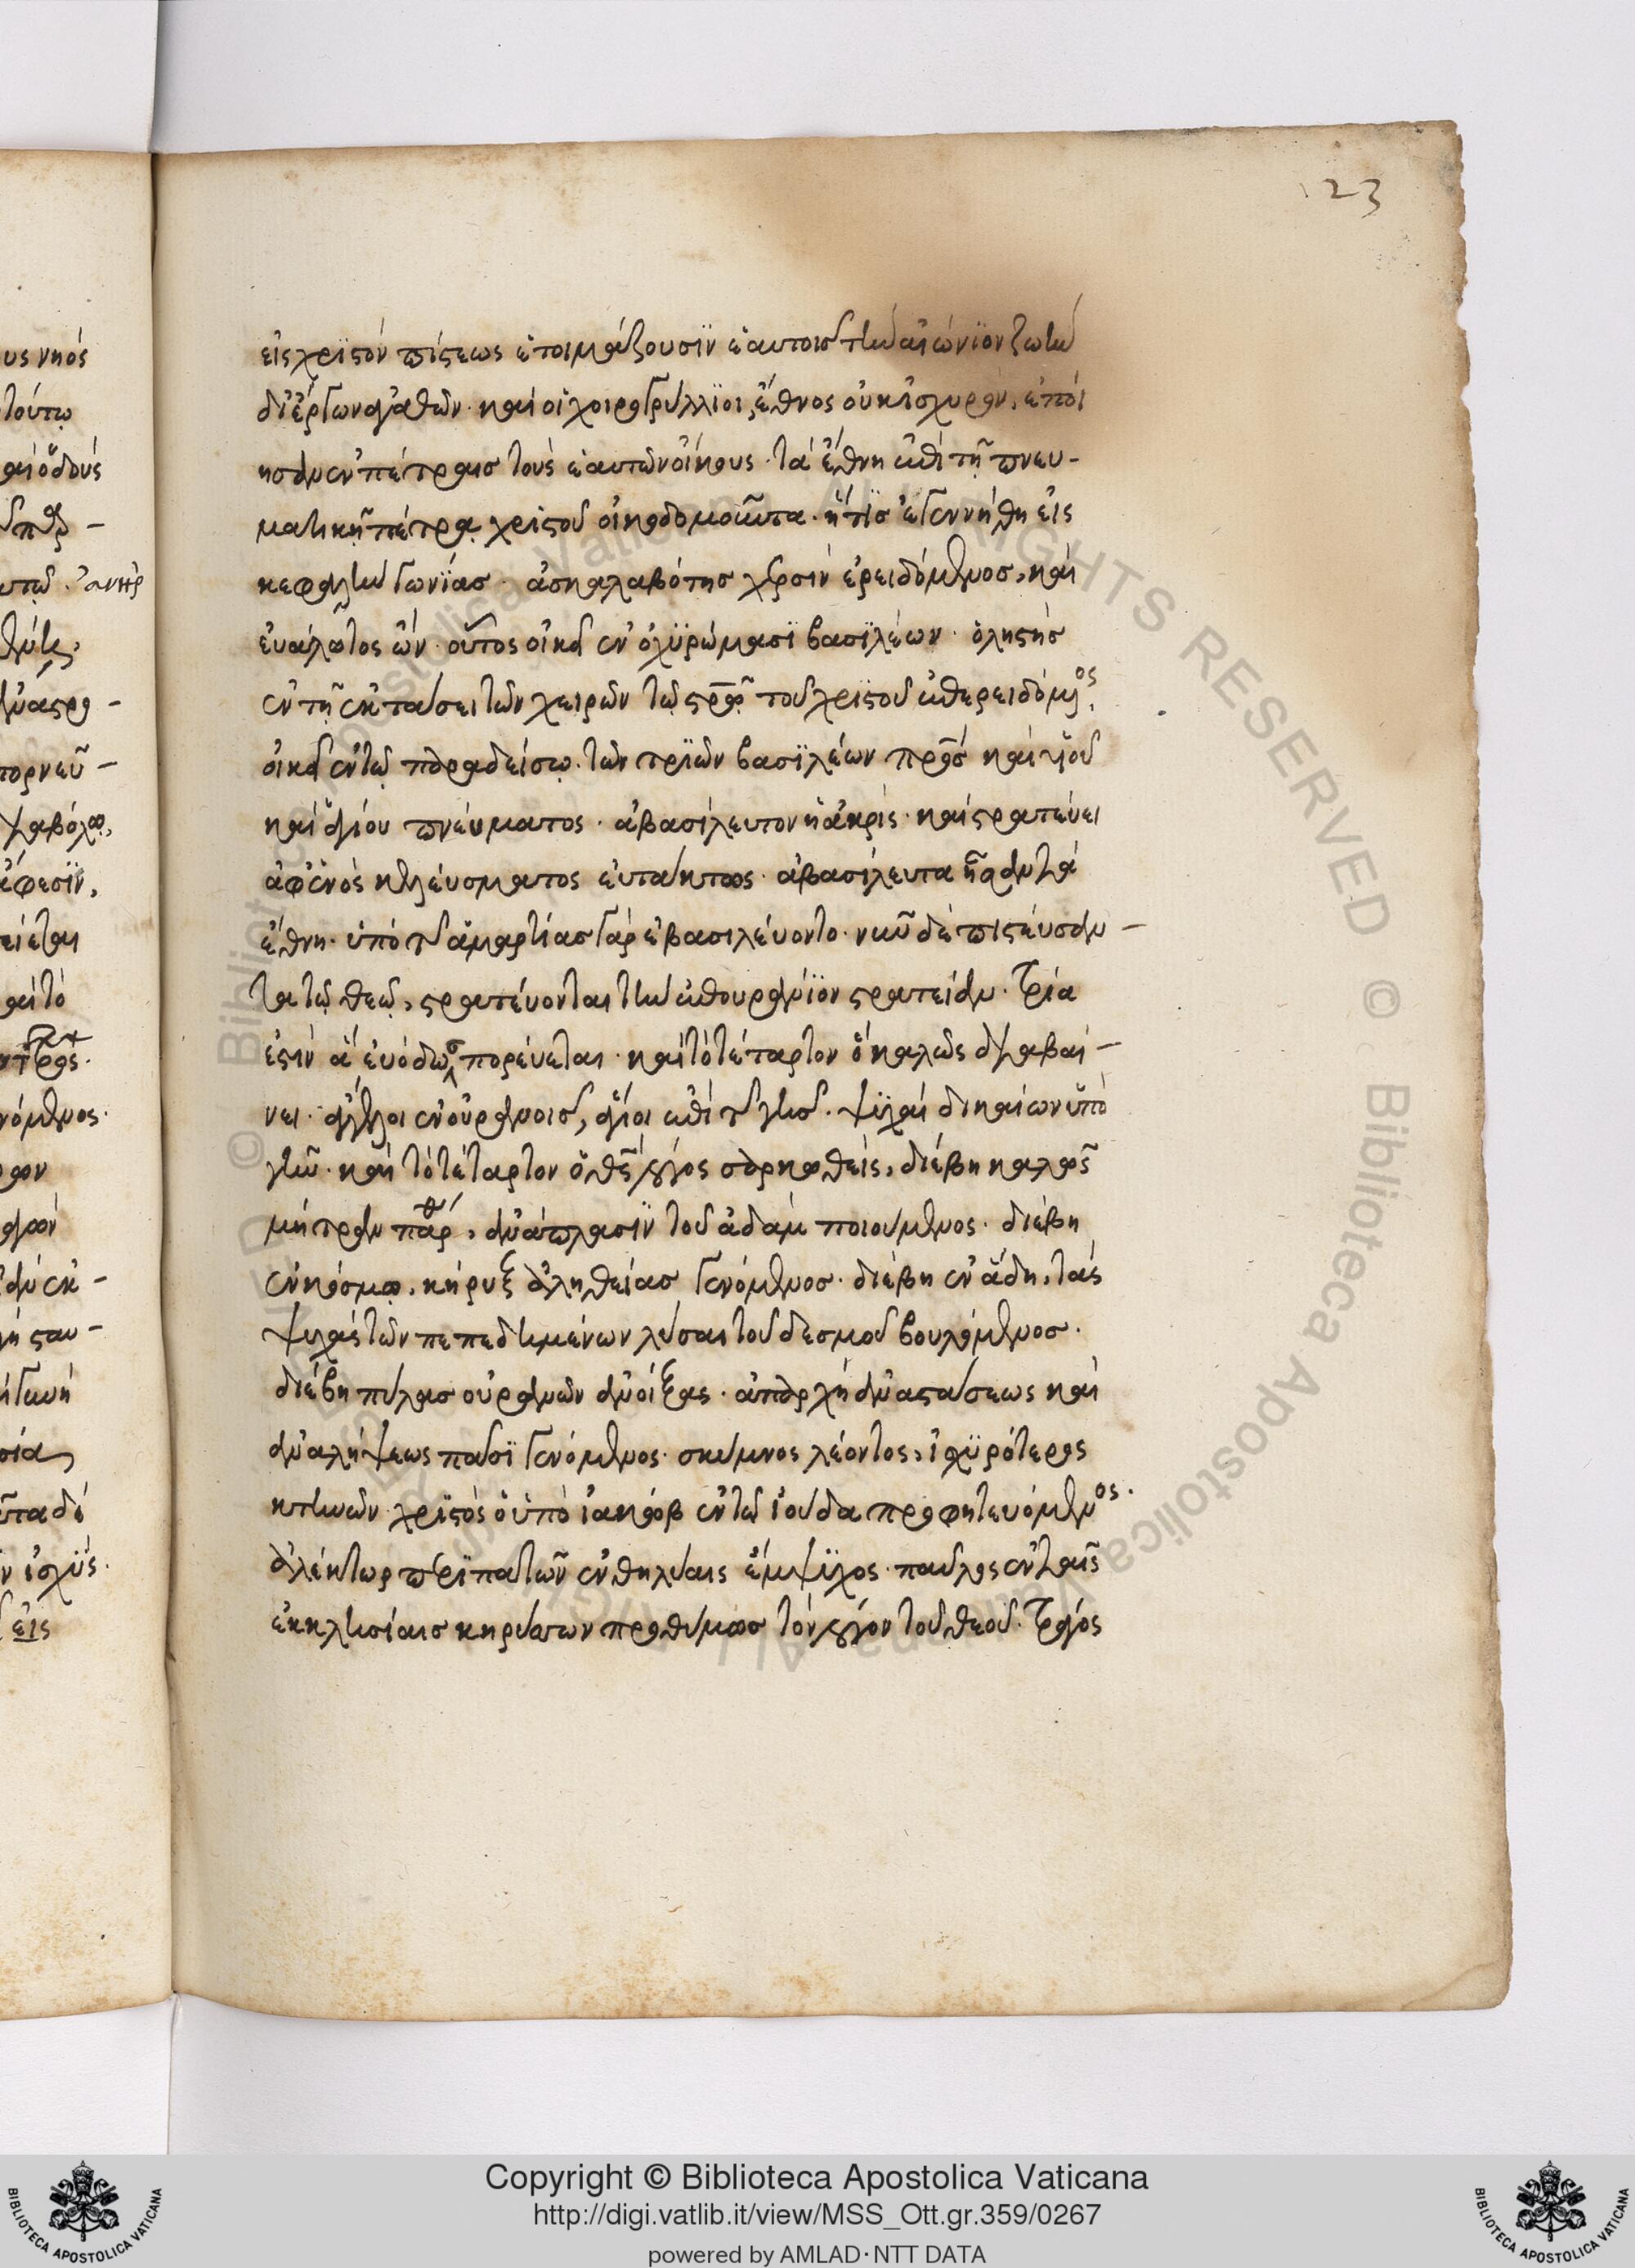 123
εἰς χριστὸν πίστεως ἑτοιμάζουσϊν ἑαυτοισ τὴν αἰώνϊον ζωὴν
δι' ἔργων ἀγαθῶν · καὶ οἱ χοιρογρύλλϊοι, ἔθνος οὐκ ἰσχυρὸν, ἐποί
ησαν ἐν πέτραισ τοὺς ἑαυτῶν οἴκους · τὰ ἔθνη ἐπὶ τῆ πνευ-
ματικῆ πέτρᾳ χριστοῦ οἰκοδομοῦντα · ἥτϊσ ἐγεννήθη εἰς
κεφαλὴν γωνίασ · ἀσκαλαβότησ χερσὶν ἐρειδόμενοσ, καὶ
ἐυάλωτος ὢν · οὗτος οἰκεῖ ἐν ὀχϋρώμασϊ βασϊλέων · ὁ ληστὴσ
ἐν τῆ ἐκτάσει τῶν χειρῶν τῶ στρῶ τοῦ χριστοῦ ἐπερειδόμενος,
οἰκεῖ ἐν τῶ παραδείσῳ · τῶν τριῶν βασϊλέων πρσ καὶ υἱοῦ
καὶ ἁγίου πνέυματος · ἀβασίλευτον ἡ ἀκρὶς · καὶ στρατέυει
ἀφ' ἑνὸς κελέυσματος ἐυτάκτως · ἀβασίλευτα ἦσαν τὰ
ἔθνη · ὑπὸ τῆς ἁμαρτίασ γὰρ ἐβασιλέυοντο · νυνῦ δὲ πιστέυσαν -
τα τῶ θεῶ, στρατέυονται τὴν ἐπουράνϊον στρατείαν · Τρία
ἐστὶν ἃ ἐυόδωσ πορέυεται · καὶ τὸ τέταρτον ὃ καλῶς διαβαί -
νει · ἄγγελοι ἐν οὐρανοισ, ἅγιοι ἐπὶ τῆς γῆσ · ψϋχαὶ δικαίων ὑπὸ
γῆν · καὶ τὸ τέταρτον ὁ θσ λόγος σαρκωθεὶς, διέβη καλῶς
μήτραν παρθ, ἀνάπλασϊν τοῦ ἀδὰμ ποιούμενος · διέβη
ἐν κόσμῳ, κῆρυξ ἀληθείασ γενόμενοσ · διέβη ἐν ἅδη, τὰς
ψυχὰς τῶν πεπεδημένων λῦσαι τοῦ δεσμοῦ βουλόμενοσ ·
διέβη πύλασ οὐρανῶν ἀνοίξας · ἀπαρχὴ ἀναστάσεως καὶ
ἀναλήψεως πᾶσϊ γενόμενος · σκύμνος λέοντος, ἰσχϋρότερος
κτηνῶν χριστὸς ὁ ὑπὸ ἰακὼβ ἐν τῶ ἰούδα προφητευόμενος ·
ἀλέκτωρ περϊπατῶν ἐν θηλείαις ἔμψϋχος · παῦλος ἐν ταῖς
ἐκκλησίαισ κηρύττων προθύμωσ τὸν λόγον τοῦ θεοῦ · Τράγος
Copyright © Biblioteca Apostolica Vaticana
http://digi.vatlib.it/view/MSS_Ott.gr.359/0267
powered by AMLAD·NTT DATA